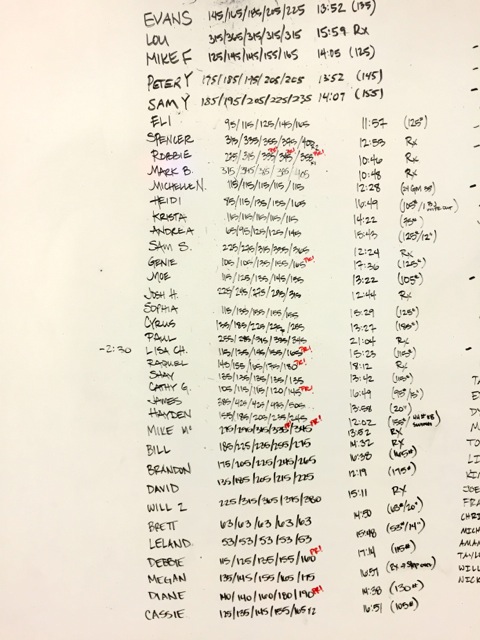 EVANS 145/165/185/205/225 13:52 (135)
LOU 315/365/315/315/315 15:59 Rx
MIKE F 125/145/145/155/165 14:05 (125)
PETER Y 175/185/195/205/205 13:52 (145)
SAM Y 185/195/205/225/235 14:07 (155)
ELI 95/115/125/145/165 11:57 (125#)
SPENCER 315/335/355/375/405 12:53 Rx
ROBBIE 225/315/335/345/355 PR! 10:46 Rx
MARK B. 315/315/315/315/405 10:48 Rx
MICHELLE N. 115/115/115/115/115 12:28
HEIDI 85/115/135/155/165 16:49 (105#)
KRISTA 115/115/115/115/115 14:22 (75#)
ANDREA 65/95/125/125/145 15:43 (125/12")
SAM S. 225/275/315/335/365 12:24 Rx
GENIE 105/105/135/155/165 PR! 17:36 (125#)
MOE 115/125/135/145/155 13:22 (105#)
JOSH H. 225/245/275/295/315 12:44 Rx
SOPHIA 115/135/155/155/155 15:29 (125#)
CYRUS 135/185/225/275/285 13:27 (185#)
PAUL 255/285/315/345/345 21:04 Rx
-2:30 LISA CH. 115/135/145/155/165 PR! 15:23 (115#)
RAQUEL 145/155/165/175/180 PR! 18:12 Rx
SHAY 135/135/135/135/135 13:42 (115#)
CATHY G. 105/115/115/120/145 PR! 16:49 (95/15")
JAMES 385/425/425/475/505 13:58 (20")
HAYDEN 155/185/205/235/245 PR! 12:02 (155#)
MIKE Mc 275/295/315/335/345 PR! 13:52 Rx
BILL 185/225/235/255/275 14:32 Rx
BRANDON 175/205/225/245/265 16:38 (165#)
DAVID 135/185/205/215/225 12:19 (175#)
WILL Z 225/315/365/375/380 15:11 Rx
BRETT 63/63/63/63/63 14:50 (63#/20")
LELAND 53/53/53/53/53 15:48 (53#/14")
DEBBIE 115/125/135/155/160 PR! 17:14 (115#)
MEGAN 135/145/155/165/175 16:57
DIANE 140/140/160/180/190 PR! 14:38 (130#)
CASSIE 125/135/145/155/165 16:51 (105#)